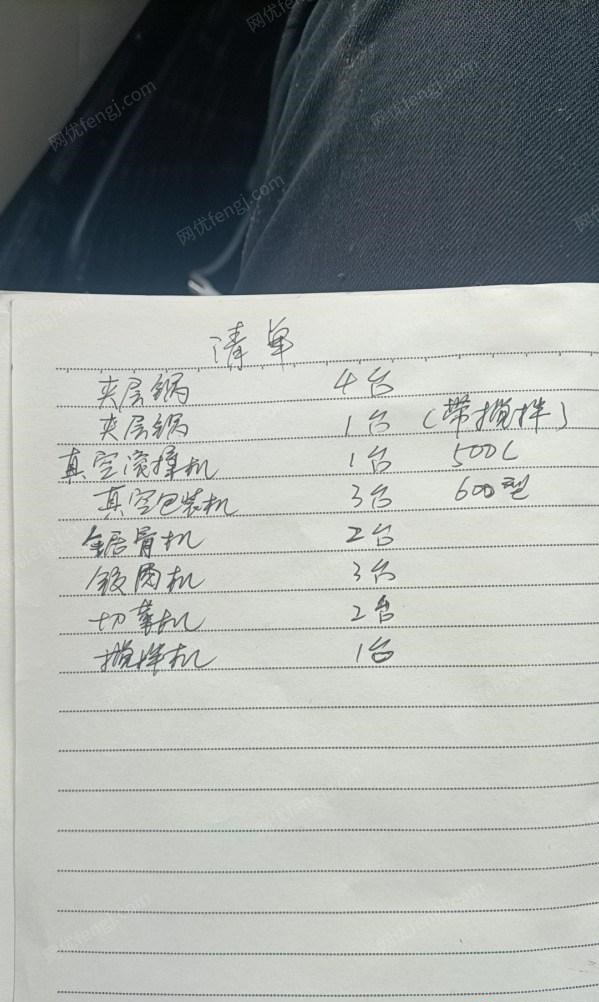 清单
夹层锅 4台
夹层锅 1台 (带搅拌)
真空滚揉机 1台 500L
真空包装机 3台 600型
锯骨机 2台
绞肉机 3台
切菜机 2台
搅拌机 1台
网优fengj.com
网优fengj.com
网优fengj.com
网优fengj.com